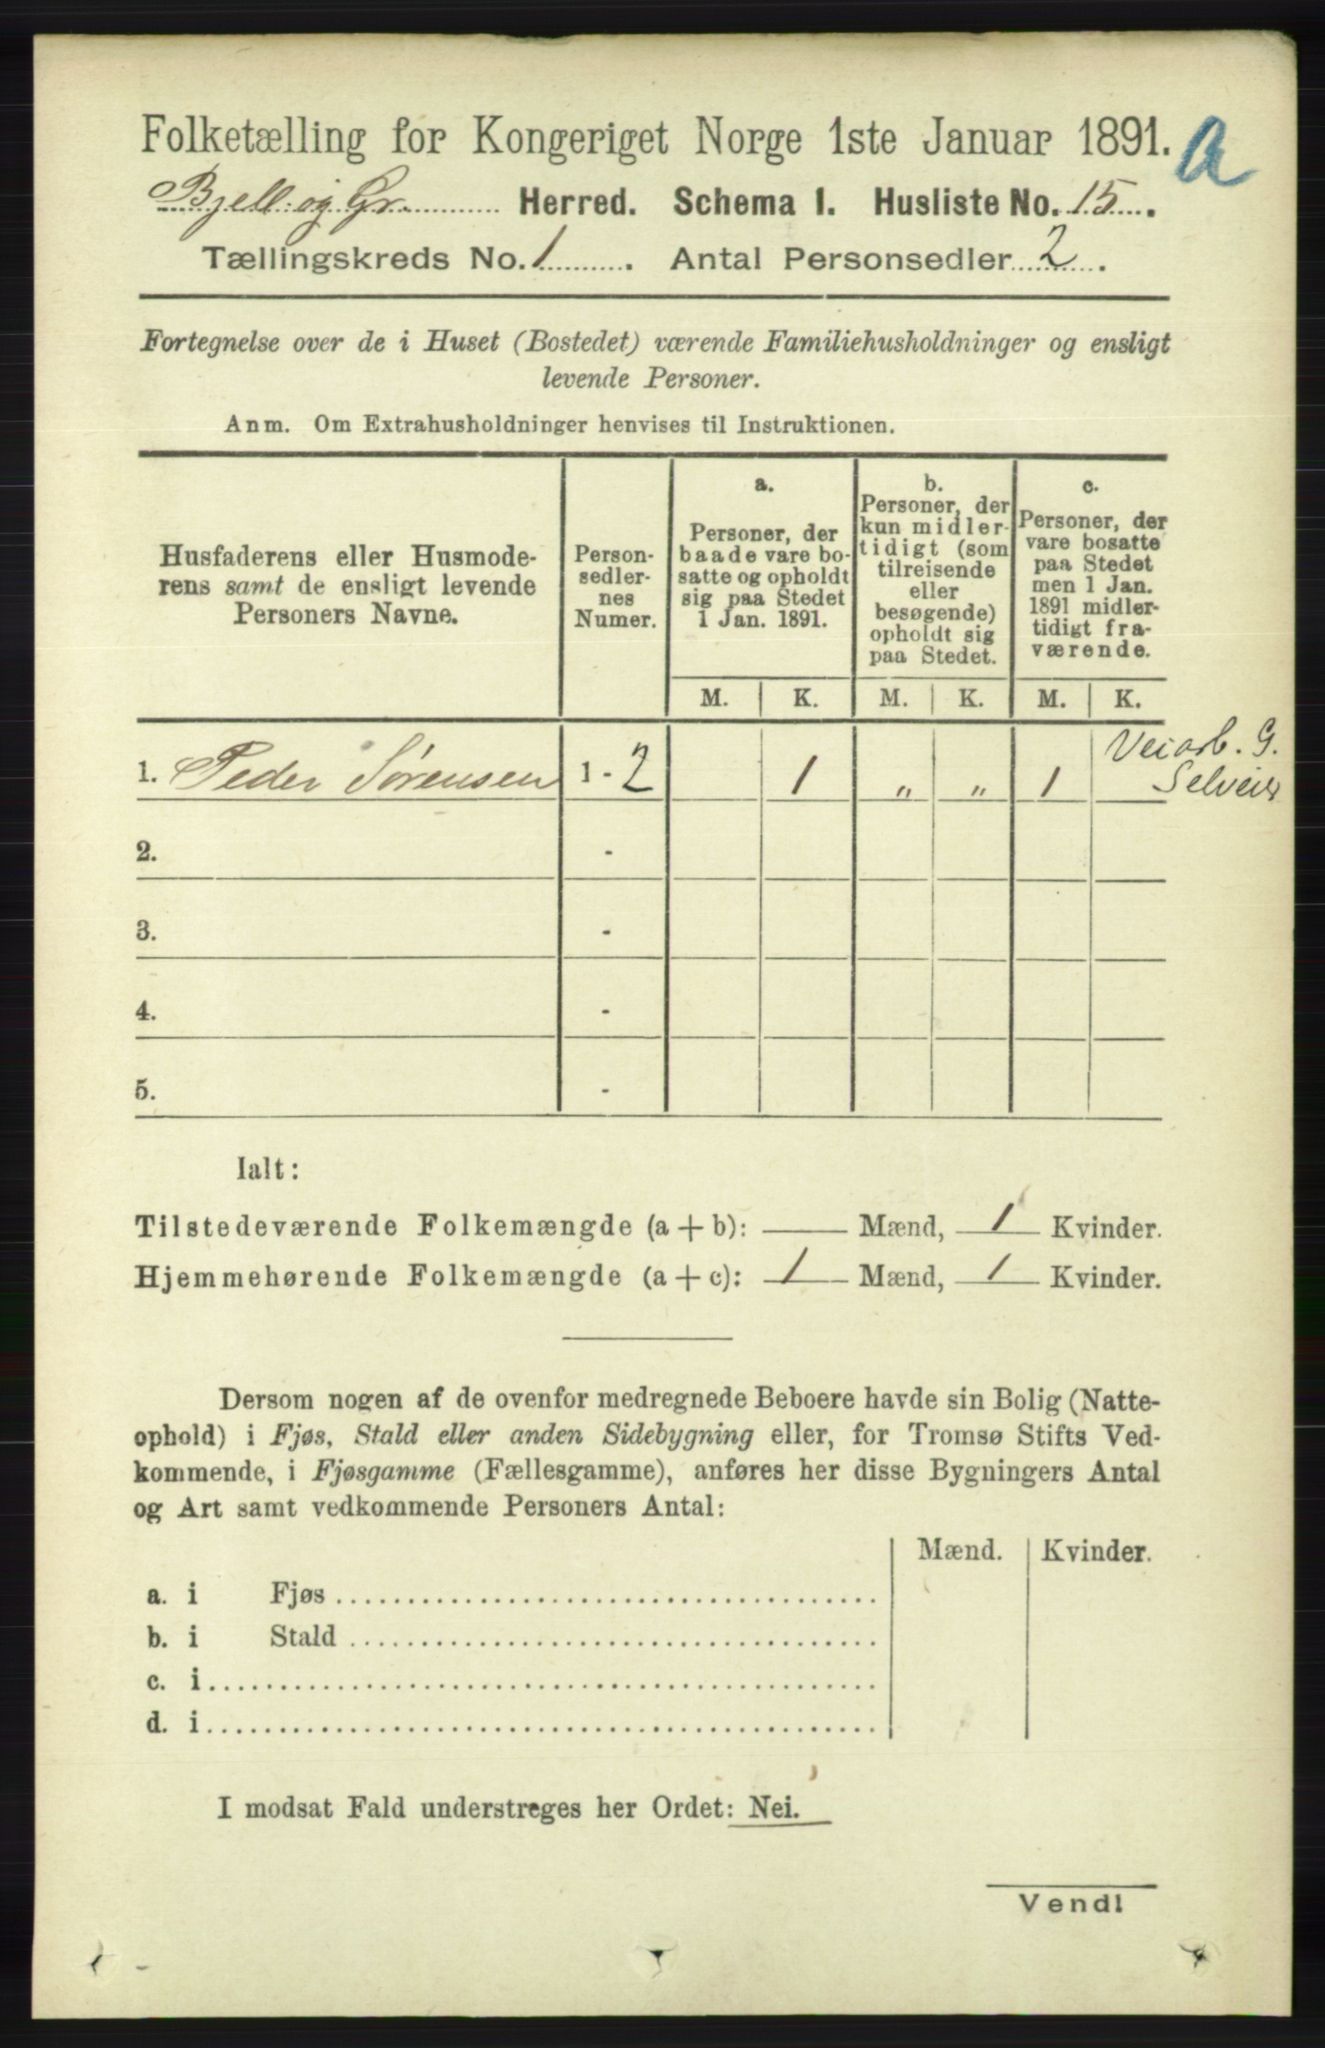 Folketælling for Kongeriget Norge 1ste Januar 1891. a
Bjell. og Gr. Herred. Schema 1. Husliste No. 15.
Tællingskreds No. 1. Antal Personsedler 2.
Fortegnelse over de i Huset (Bostedet) værende Familiehusholdninger og ensligt
levende Personer.
Anm. Om Extrahusholdninger henvises til Instruktionen.
Husfaderens eller Husmode-
rens samt de ensligt levende
Personers Navne.
Person-
sedler-
nes
Numer.
a.
Personer, der
baade vare bo-
satte og opholdt
sig paa Stedet
1 Jan. 1891.
b.
Personer, der
kun midler-
tidigt (som
tilreisende
eller
besøgende)
opholdt sig
paa Stedet.
c.
Personer, der
vare bosatte
paa Stedet
men 1 Jan.
1891 midler-
tidigt fra-
værende.
M. K. M. K. M. K.
Veiarb. G.
1. Peder Sørensen 1 - 2 1 „ „ 1 Selveier
2. -
3. -
4. -
5. -
Ialt:
Tilstedeværende Folkemængde (a + b): — Mænd, 1 Kvinder.
Hjemmehørende Folkemængde (a + c): 1 Mænd, 1 Kvinder.
Dersom nogen af de ovenfor medregnede Beboere havde sin Bolig (Natte-
ophold) i Fjøs, Stald eller anden Sidebygning eller, for Tromsø Stifts Ved-
kommende, i Fjøsgamme (Fællesgamme), anføres her disse Bygningers Antal
og Art samt vedkommende Personers Antal:
Mænd. Kvinder.
a. i Fjøs
b. i Stald
c. i
d. i
I modsat Fald understreges her Ordet: Nei.
Vend!